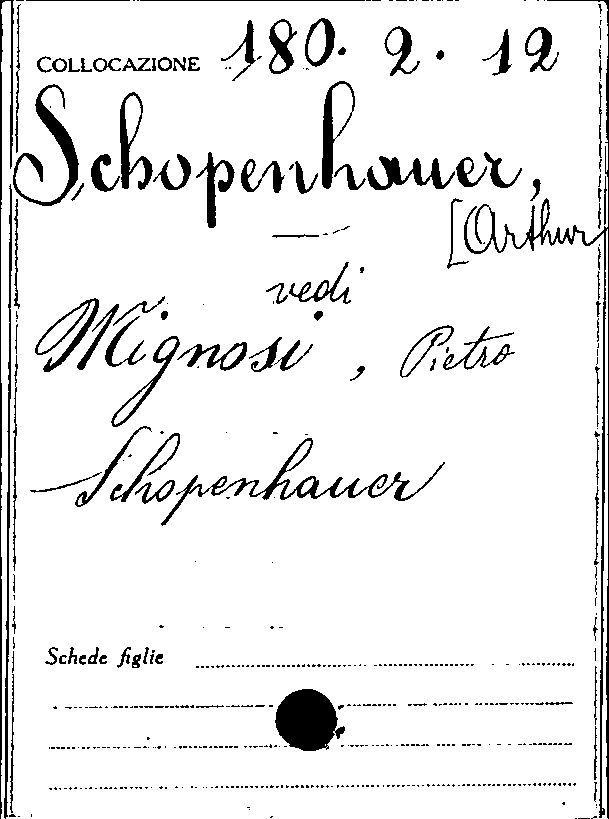 COLLOCAZIONE 180. 2. 12
Schopenhauer,
[Arthur
vedi
Mignosi, Pietro
Schopenhauer
Schede figlie